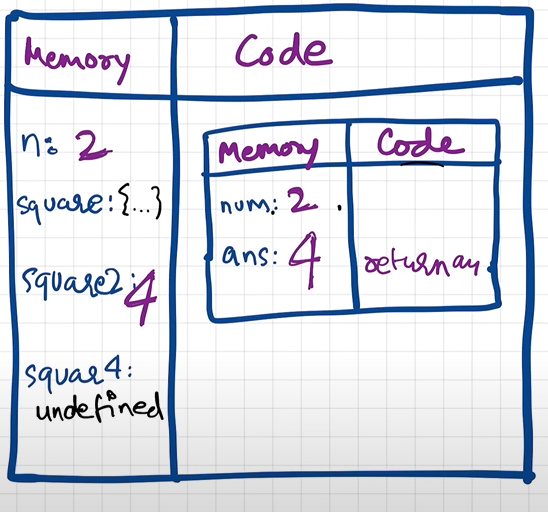 Memory
Code
n: 2
square: {...}
square2: 4
squar4:
undefined
Memory
Code
num: 2
ans: 4
return an